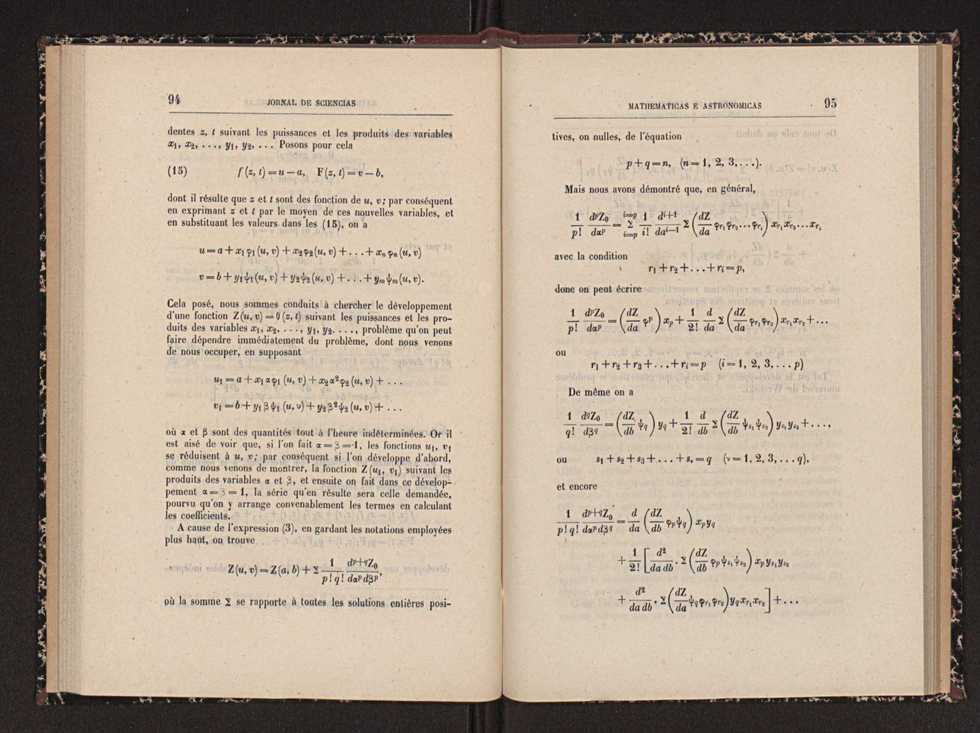 94 JORNAL DE SCIENCIAS
dentes z, t suivant les puissances et les produits des variables
x₁, x₂, ..., y₁, y₂, ... Posons pour cela
(15) f(z, t) = u — a, F(z, t) = v — b,
dont il résulte que z et t sont des fonction de u, v; par conséquent
en exprimant z et t par le moyen de ces nouvelles variables, et
en substituant les valeurs dans les (15), on a
u = a + x₁ φ₁ (u, v) + x₂ φ₂ (u, v) + ... + xₙ φₙ (u, v)
v = b + y₁ ψ₁ (u, v) + y₂ ψ₂ (u, v) + ... + yₘ ψₘ (u, v).
Cela posé, nous sommes conduits à chercher le développement
d'une fonction Z(u, v) = θ (z, t) suivant les puissances et les pro-
duits des variables x₁, x₂, ..., y₁, y₂, ..., problème qu'on peut
faire dépendre immédiatement du problème, dont nous venons
de nous occuper, en supposant
u₁ = a + x₁ α φ₁ (u, v) + x₂ α² φ₂ (u, v) + ...
v₁ = b + y₁ β ψ₁ (u, v) + y₂ β² ψ₂ (u, v) + ...
où α et β sont des quantités tout à l'heure indéterminées. Or il
est aisé de voir que, si l'on fait α = β = 1, les fonctions u₁, v₁
se réduisent à u, v; par conséquent si l'on développe d'abord,
comme nous venons de montrer, la fonction Z (u₁, v₁) suivant les
produits des variables α et β, et ensuite on fait dans ce dévelop-
pement α = β = 1, la série qu'en résulte sera celle demandée,
pourvu qu'on y arrange convenablement les termes en calculant
les coefficients.
A cause de l'expression (3), en gardant les notations employées
plus haut, on trouve
Z(u, v) = Z(a, b) + Σ 1/(p! q!) d^{p+q}Z₀/(dα^p dβ^p),
où la somme Σ se rapporte à toutes les solutions entières posi-
MATHEMATICAS E ASTRONOMICAS 95
tives, on nulles, de l'équation
p + q = n, (n = 1, 2, 3, ...).
Mais nous avons démontré que, en général,
1/p! d^pZ₀/dα^p = Σ_{i=p}^{i=p} 1/i! d^{i+1}/da^{i—1} Σ (dZ/da φ_{r₁} φ_{r₂} ... φ_{rᵢ}) x_{r₁} x_{r₂} ... x_{rᵢ}
avec la condition
r₁ + r₂ + ... + rᵢ = p,
donc on peut écrire
1/p! d^pZ₀/dα^p = (dZ/da φ^p) x_p + 1/2! d/da Σ (dZ/da φ_{r₁} φ_{r₂}) x_{r₁} x_{r₂} + ...
ou
r₁ + r₂ + r₃ + ... + rᵢ = p (i = 1, 2, 3, ... p)
De même on a
1/q! d^qZ₀/dβ^q = (dZ/db ψ_q) y_q + 1/2! d/db Σ (dZ/db ψ_{s₁} ψ_{s₂}) y_{s₁} y_{s₂} + ...,
ou s₁ + s₂ + s₃ + ... + s_ν = q (ν = 1, 2, 3, ... q),
et encore
1/(p! q!) d^{p+q}Z₀/(dα^p dβ^q) = d/da (dZ/db φ_p ψ_q) x_p y_q
+ 1/2! [d²/(da db) . Σ (dZ/db φ_p ψ_{s₁} ψ_{s₂}) x_p y_{s₁} y_{s₂}
+ d²/(da db) . Σ (dZ/da ψ_q φ_{r₁} φ_{r₂}) y_q x_{r₁} x_{r₂}] + ...